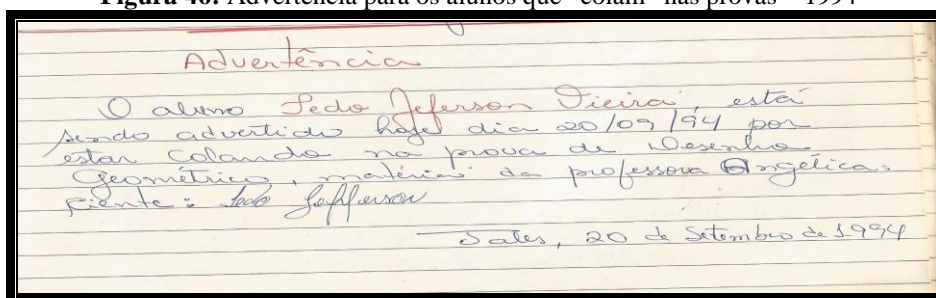 Figura 40: Advertência para os alunos que "colam" nas provas – 1994
Advertência
O aluno Ledo Jeferson Vieira, está
sendo advertido hoje dia 20/09/94 por
estar colando na prova de Desenho
Geométrico, matéria da professora Angélica.
Ciente: Ledo Jefferson
Sales, 20 de Setembro de 1994